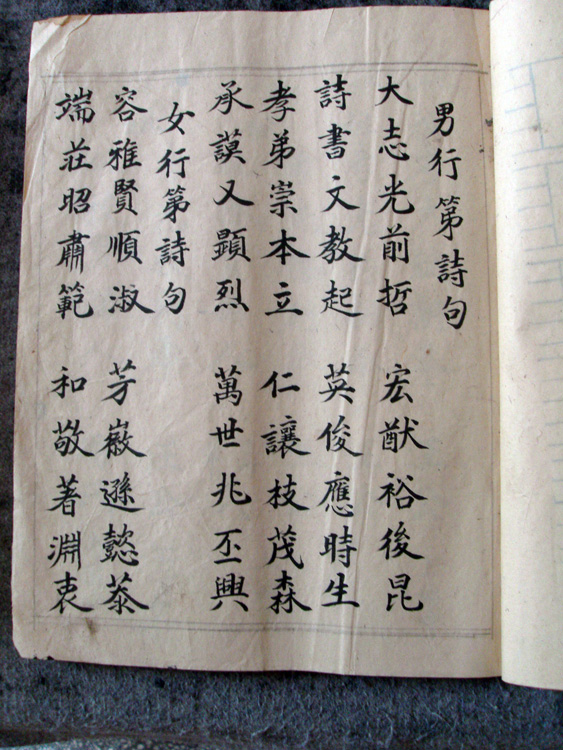 男行第詩句
大志光前哲 宏猷裕後昆
詩書文教起 英俊應時生
孝弟崇本立 仁讓枝茂森
承謨又顯烈 萬世兆丕興
女行第詩句
容雅賢順淑 芳嶶遜懿恭
端莊昭肅範 和敬著淵衷